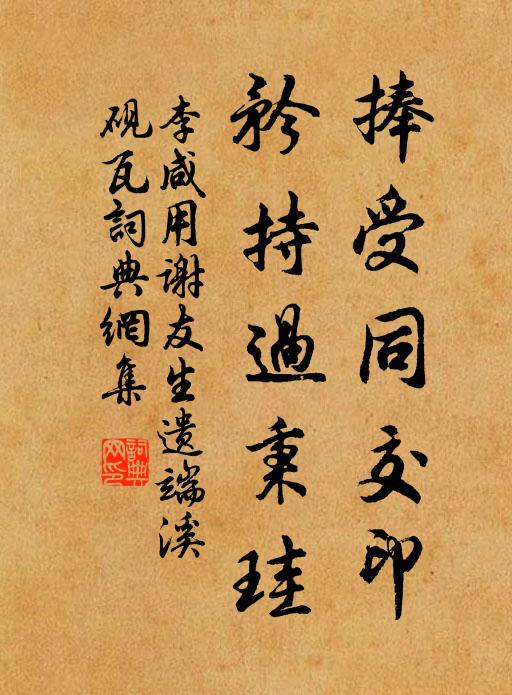 捧受同交印
矜持過秉珪
李咸用谢友生遗端溪
砚瓦詞典網集
詞典
网印